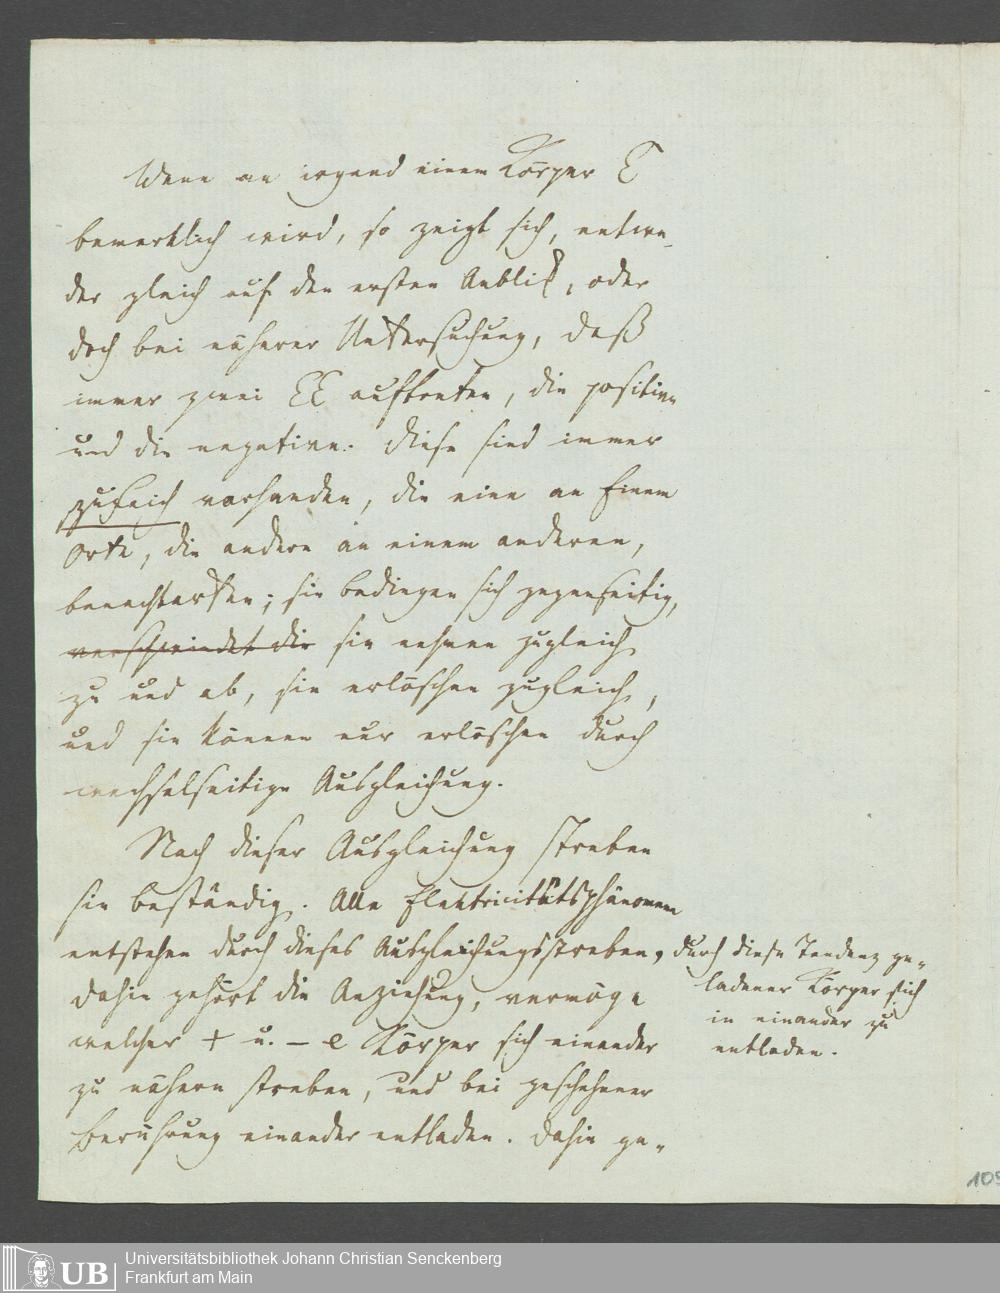 Wenn an irgend einem Körper E
bemerklich wird, so zeigt sich, entwe-
der gleich auf den ersten Anblik, oder
doch bei näherer Untersuchung, daß
immer zwei EE auftreten, die positive
und die negative. Diese sind immer
zugleich vorhanden, die eine an Einem
Orte, die andere an einem anderen,
benachbarten; sie bedingen sich gegenseitig,
verschwindet die sie nehmen zugleich
zu und ab, sie erlöschen zugleich,
und sie können nur erlöschen durch
wechselseitige Ausgleichung.
Nach dieser Ausgleichung streben
sie beständig. Alle Elektricitätsphänomene
entstehen durch dieses Ausgleichungsstreben, durch diese Tendenz ge-
ladener Körper sich
in einander zu
entladen.
dahin gehört die Anziehung, vermöge
welcher + u. - e Körper sich einander
zu nähern streben, und bei geschehener
Berührung einander entladen. Dahin ge-
109
UB
Universitätsbibliothek Johann Christian Senckenberg
Frankfurt am Main